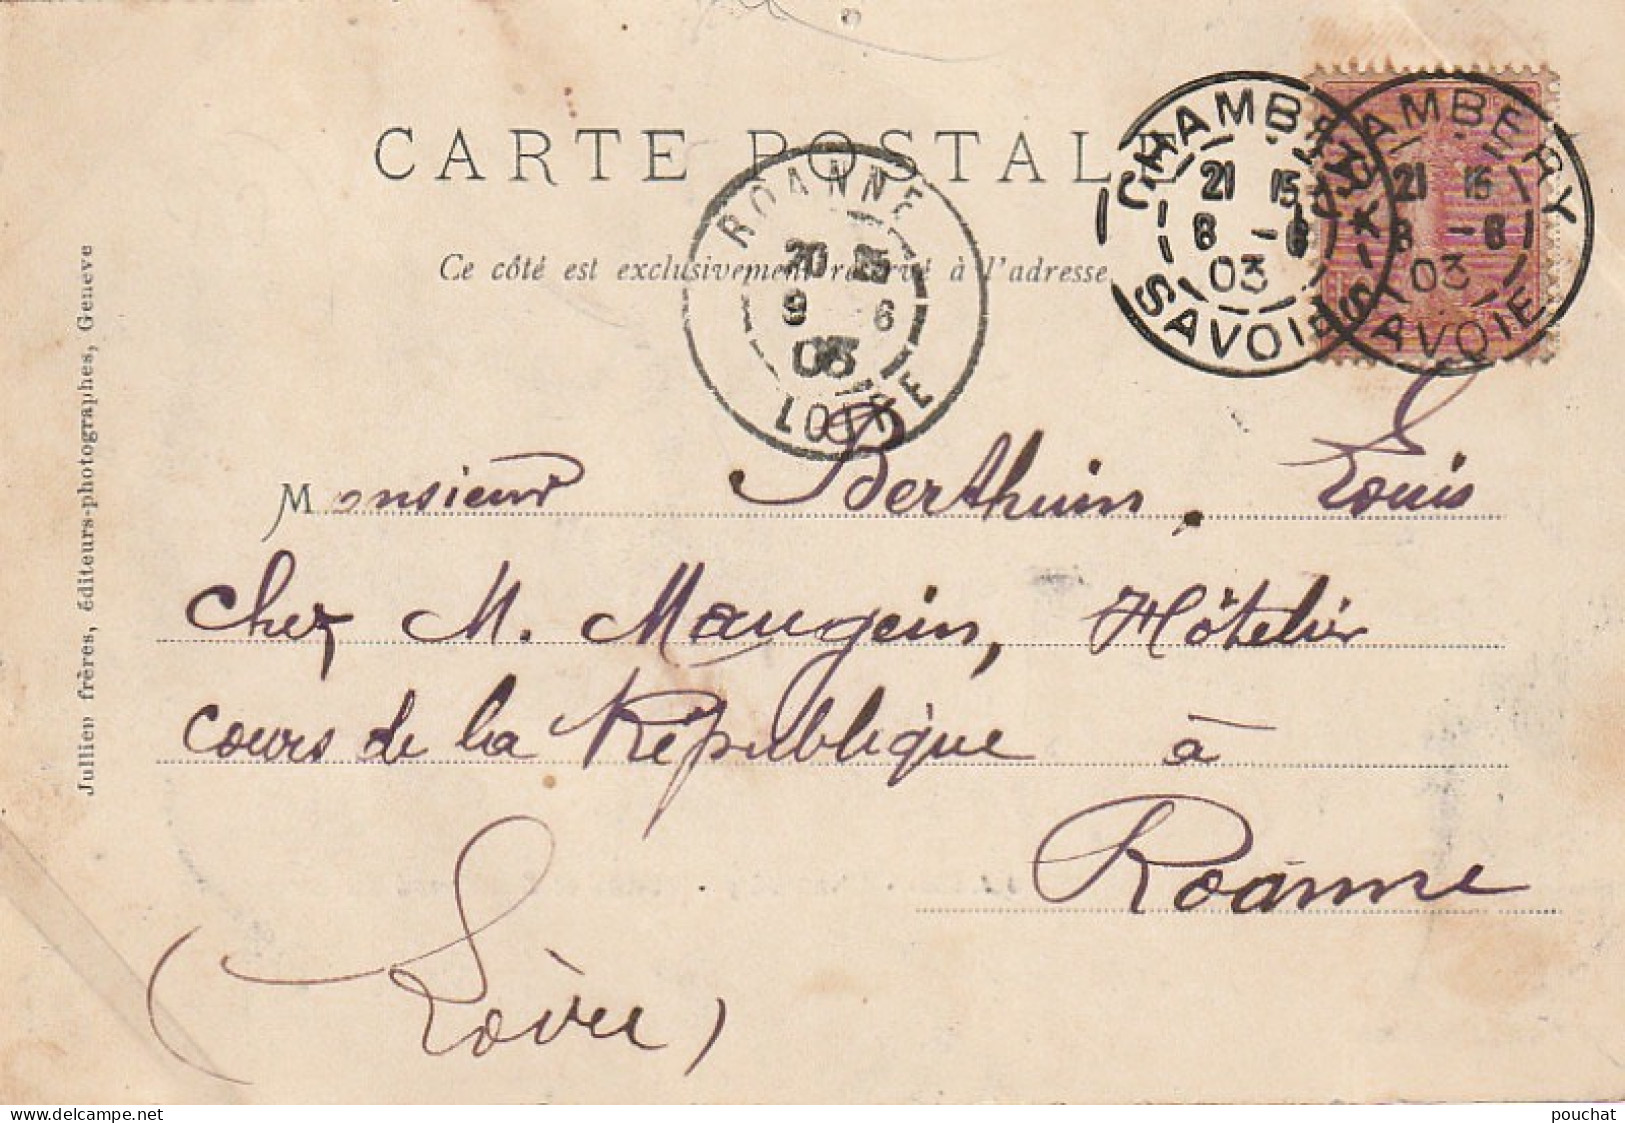 CARTE POSTALE
Ce côté est exclusivement réservé à l'adresse
CHAMBERY
21 15
8 - 6
03
SAVOIE
CHAMBERY
21 15
8 - 6
03
SAVOIE
ROANNE
20 15
9 6
03
LOIRE
Julien frères, éditeurs-photographes, Genève
Monsieur Berthuin, Louis
chez M. Maugein, Hôtelier
cours de la République à
Roanne
(Loire)
www.delcampe.net
pouchat